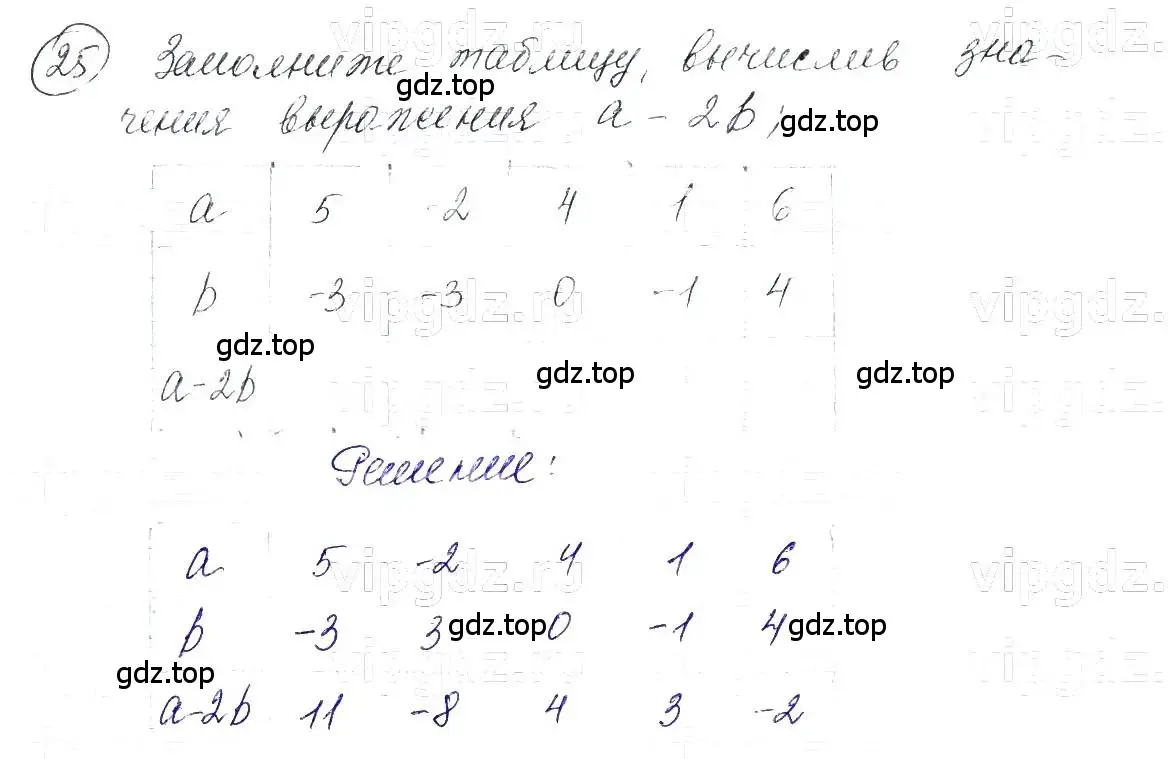 25 Заполните таблицу, вычислив зна-
чения выражения a - 2b;
a 5 -2 4 1 6
b -3 -3 0 -1 4
a-2b
Решение:
a 5 -2 4 1 6
b -3 3 0 -1 4
a-2b 11 -8 4 3 -2
gdz.top
gdz.top
gdz.top
gdz.top
gdz.top
gdz.top
gdz.top
gdz.top
vipgdz.ru
vipgdz.ru
vipgdz.ru
vipgdz.ru
vipgdz.ru
vipgdz.ru